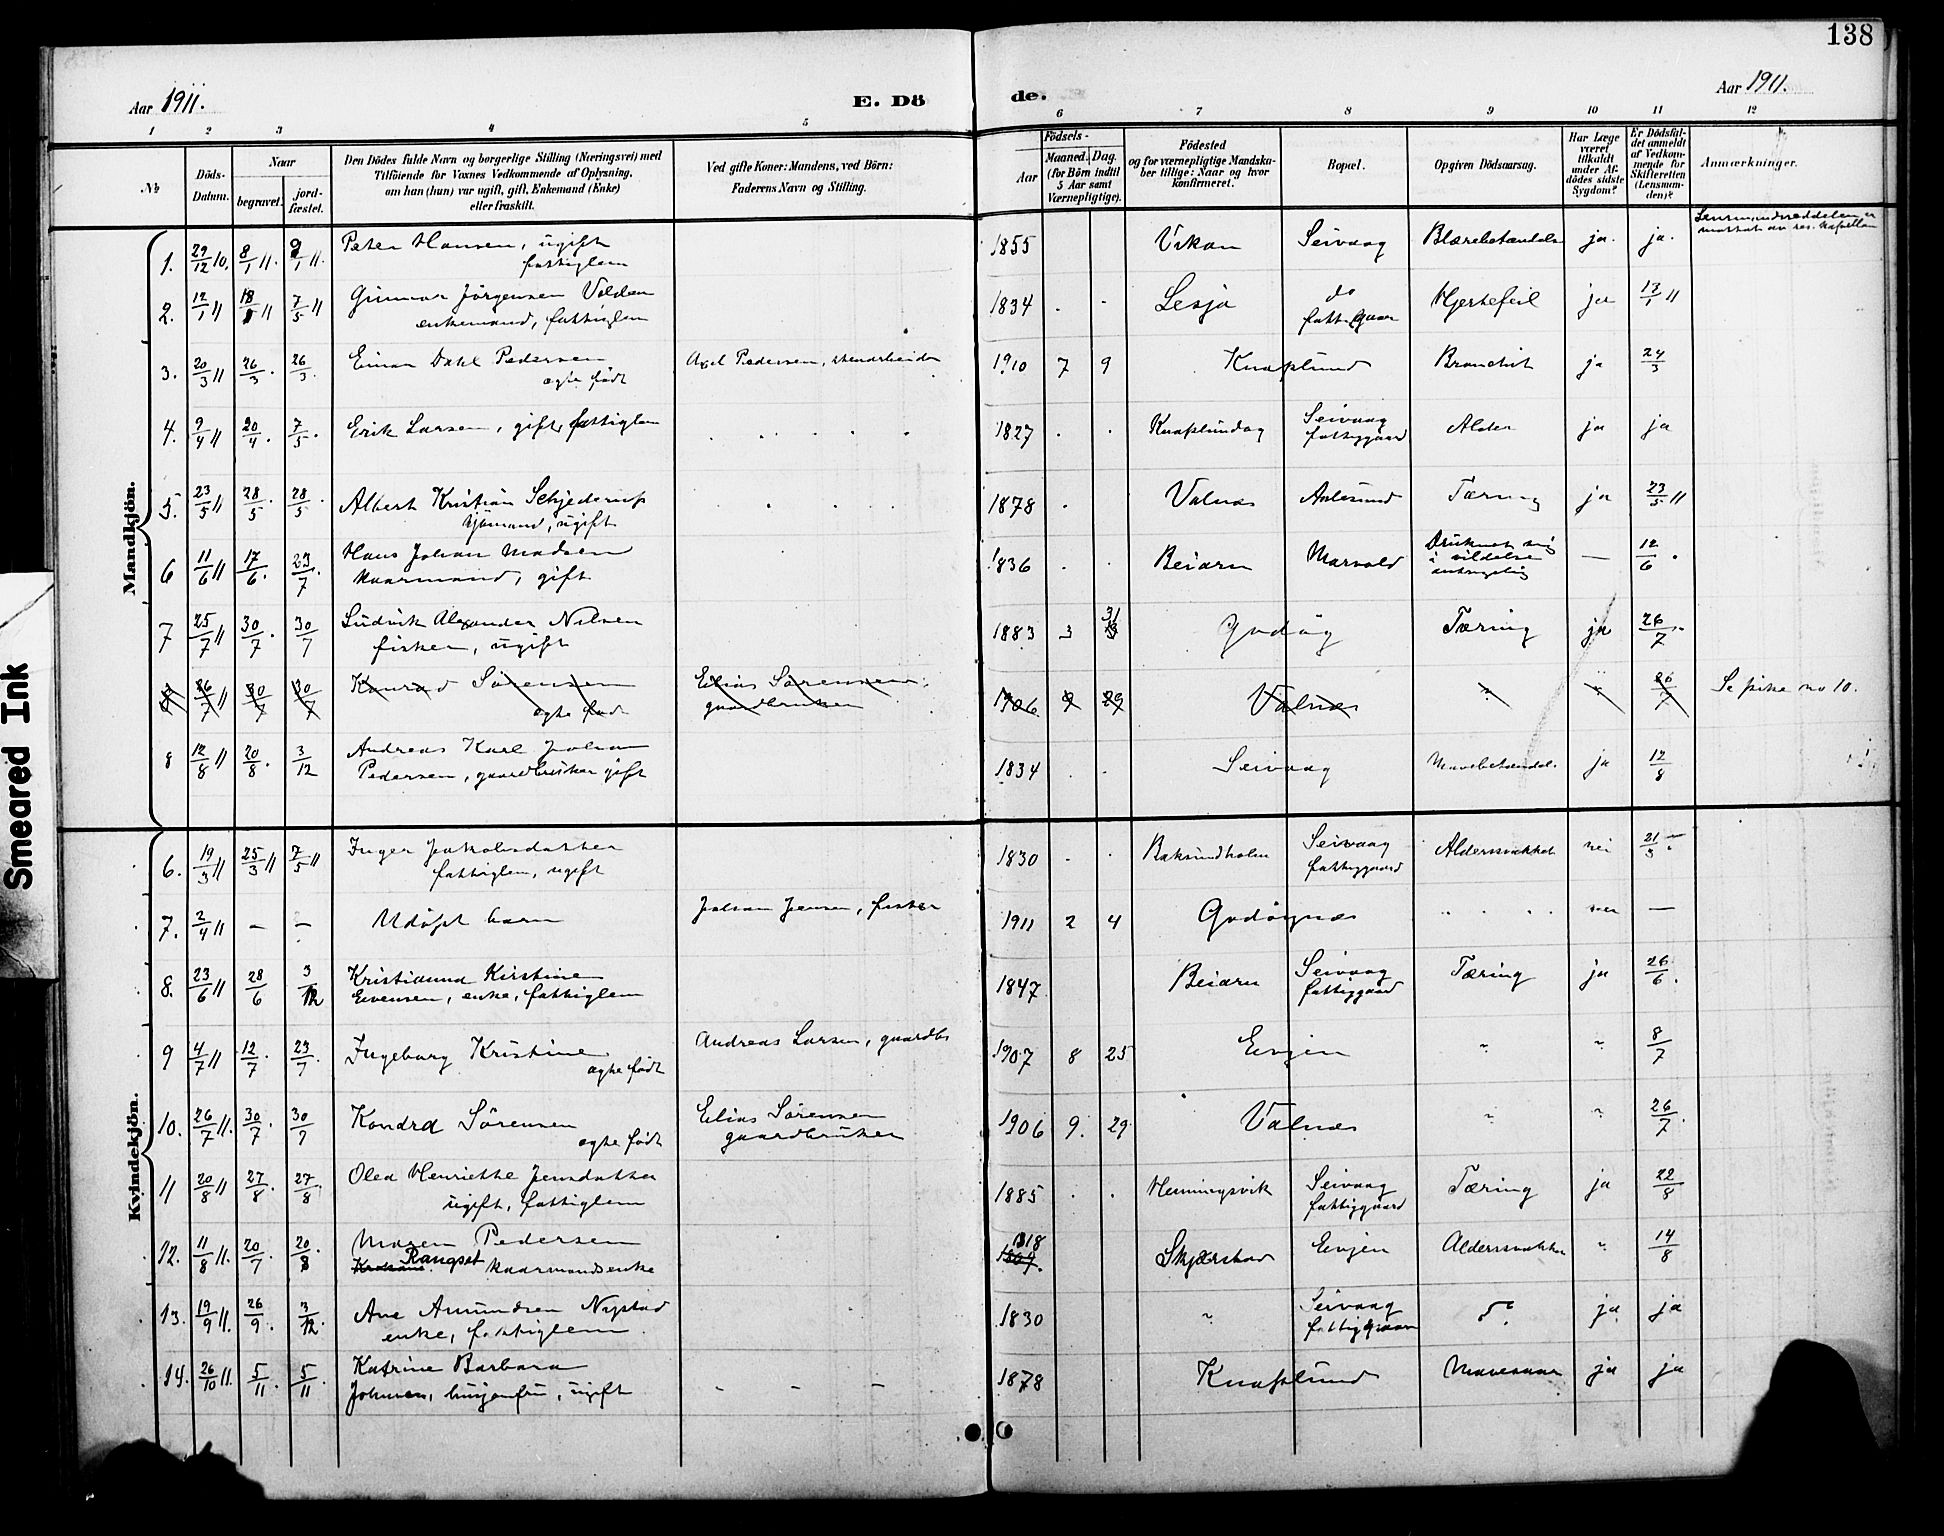 138
Aar 1911.
E. Dö
de.
Aar 1911.
1 2 3 4 5 6 7 8 9 10 11 12
No
Döds-Datum.
Naar
begravet.
jord-fæstet.
Den Dödes fulde Navn og borgerlige Stilling (Næringsvei) med
Tilföiende for Voxnes Vedkommende af Oplysning,
om han (hun) var ugift, gift, Enkemand (Enke)
eller fraskilt.
Ved gifte Koner: Mandens, ved Börn:
Faderens Navn og Stilling.
Födsels-
Aar
Maaned. Dag.
(for Börn indtil
5 Aar samt
Værnepligtige).
Födested
og for værnepligtige Mandska-
ber tillige: Naar og hvor
konfirmeret.
Bopæl.
Opgiven Dödsaarsag.
Har Læge
været
tilkaldt
under Af-
dödes sidste
Sygdom?
Er Dödsfal-
det anmeldt
af Vedkom-
mende for
Skifteretten
(Lensman-
den)?
Anmærkninger.
Mandkjön.
1. 29/12 10. 8/1 11. 9/1 11. Peter Hansen, ugift
fattiglem
1855 Vikan Seivaag Blærebetændelse ja. ja.
2. 12/1 11 18/1 11 7/5 11 Gunnar Jörgensen Volden
enkemand, fattiglem
1834 Lesja do
fattiggaar Hjertefeil ja 13/1 11
3. 20/3 11 26/3. 26/3. Einar Dahl Pedersen
ægte födt
Axel Pedersen, stenarbeider
1910 7 9 Knaplund Bronchit ja 24/3
4. 9/4 11 20/4. 7/5. Erik Larsen, gift, fattiglem
1827 Knaplundög Seivaag
fattiggaard Alder ja ja
5. 23/5 11 28/5. 28/5. Albert Kristian Schjederup
ugift
1878 Valnes Aalesund Tæring ja 23/5 11
6 11/6 11 17/6. 23/7. Hans Johan Madsen
kaarmand, gift
1836 Beiarn Marvold Druknet sig
i vildelse
antagelig — 12/6.
7 25/7 11 30/7. 30/7 Ludvik Alexander Nilsen
fisker, ugift
1883 3 31 Godög Tæring ja 26/7.
8 26/7 11 30/7 30/7 Konrad Sörensen
ægte född
Elias Sörensen,
gaardbruker
1906 9 29 Valnes " " 26/7 Se pike no 10.
8 12/8 11 20/8. 3/12 Andreas Karl Johan
Pedersen, gaardbruker gift
1834 Seivaag Mavebetændel. ja 12/8
Kvindekjön.
6. 19/3 11 25/3 11 7/5 11 Inger Jakobsdatter
fattiglem, ugift
1830 Baksundholm Seivaag
fattiggaard Alderssvakhet nei 21/3.
7. 2/4 11 — — Udöpt barn
Johan Jensen, fisker
1911 2 4 Godögnes nei —
8. 23/6 11 28/6 3/12 Kristianna Kirstine
Evensen, enke, fattiglem
1847 Beiarn Seivaag
fattiggaard Tæring ja 26/6.
9 4/7 11 12/7. 23/7. Ingeborg Kristine
ægte födt
Andreas Larsen, gaardbr
1907 8 25 Evjen " " 8/7
10. 26/7 11. 30/7. 30/7 Kondra Sörensen
ægte födt
Elias Sörensen
gaardbruker
1906 9. 29. Valnes " " 26/7.
11 20/8 11 27/8. 27/8. Olea Henriette Jensdatter
ugift, fattiglem
1885 Henningsvik Seivaag
fattiggaard Tæring ja 22/8
12. 11/8 11. 20/7. 20/8. Maren Pedersen
Rangset kaarmandsenke
1818 Skjærstad Evjen Alderssvakhet " 14/8
13. 19/9 11. 26/9. 3/12 Ane Amundsen Nystad
enke, fattiglem
1830 " Seivaag
fattiggaar ja ja
14. 26/10 11. 5/11. 5/11 Katrine Barbara
Johnsen, ugift
- - -
1878 Knaplund Mavesaar ja ja
Smeared Ink